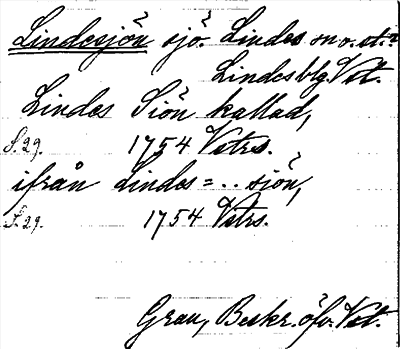 Lindesjön sjö. Lindes sn o. st.?
Lindesblg. Vst.
Lindes Siön kallad,
S. 29. 1754 Vstrs.
ifrån Lindes=.. siön,
S. 29. 1754 Vstrs.
Grau, Beskr. öfv. Vst.